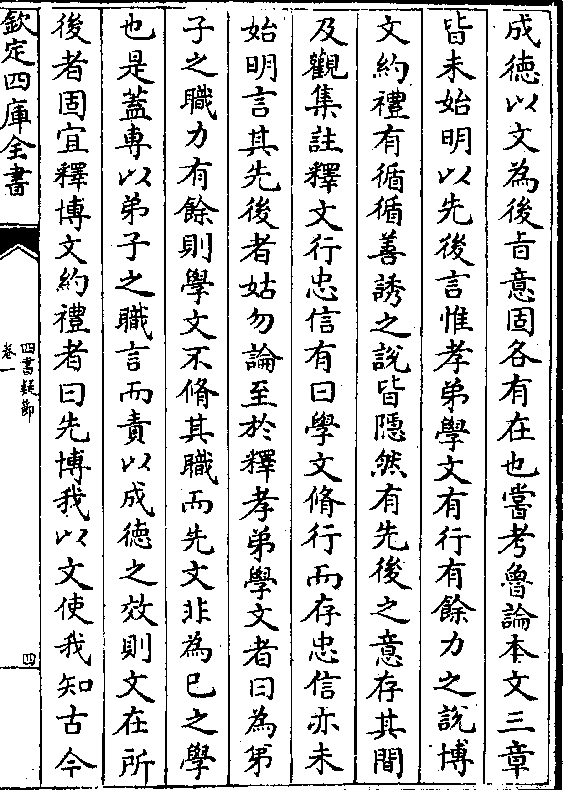 成徳以文為後㫖意固各有在也嘗考魯論本文三章
皆未始明以先後言惟孝弟學文有行有餘力之說博
文約禮有循循善誘之說皆隠然有先後之意存其間
及觀集註釋文行忠信有曰學文脩行而存忠信亦未
始明言其先後者姑勿論至於釋孝弟學文者曰為第
子之職力有餘則學文不脩其職而先文非為已之學
也是蓋専以弟子之職言而責以成徳之效則文在所
後者固宜釋博文約禮者曰先博我以文使我知古今
欽定四庫全書
四書疑節
卷一
四